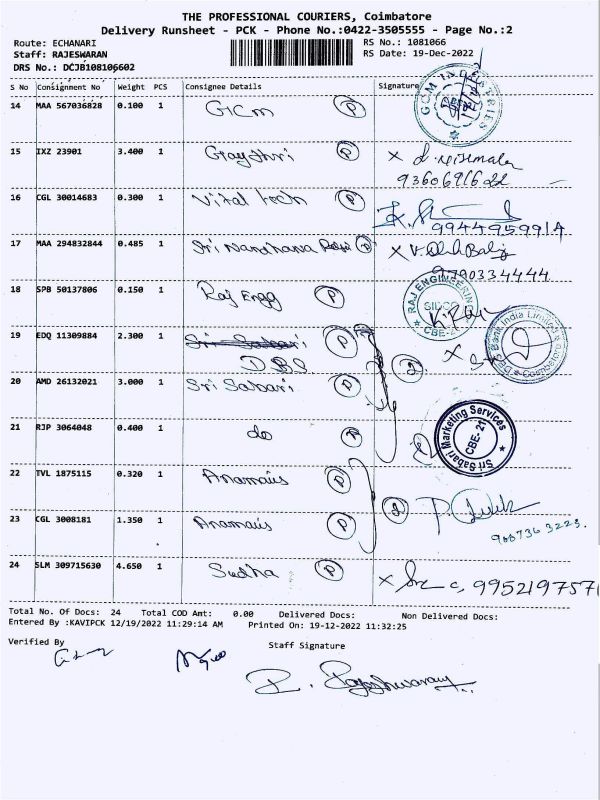 THE PROFESSIONAL COURIERS, Coimbatore
Delivery Runsheet - PCK - Phone No.:0422-3505555 - Page No.:2
Route: ECHANARI
RS No.: 1081066
Staff: RAJESWARAN
RS Date: 19-Dec-2022
DRS No.: DCJB108106602
S No Consignment No Weight PCS Consignee Details Signature
14 MAA 567036828 0.100 1 GCM P
GCM INDUSTRIES
15 IXZ 23901 3.400 1 Gayathri P X
9360691622
16 CGL 30014683 0.300 1 Vital tech P
9944959914
17 MAA 294832844 0.485 1 Sri Nandhana P X V.
9790334444
18 SPB 50137806 0.150 1 Raj Engg P
RAJ ENGINEERING
SIDCO
CBE-
19 EDQ 11309884 2.300 1 Sri Sabari P
DBS 2 X
DBS Bank India Limited Coimbatore
20 AMD 26132021 3.000 1 Sri Sabari P
21 RJP 3064048 0.400 1 do P
Sri Sabari Marketing Services
CBE-21
22 TVL 1875115 0.320 1 Anamaiis P
2
23 CGL 3008181 1.350 1 Anamaiis P
24 SLM 309715630 4.650 1 Sudha P X 9952197571
Total No. Of Docs: 24 Total COD Amt: 0.00 Delivered Docs: Non Delivered Docs:
Entered By :KAVIPCK 12/19/2022 11:29:14 AM Printed On: 19-12-2022 11:32:25
Verified By
Staff Signature
R. Rajeshwaran